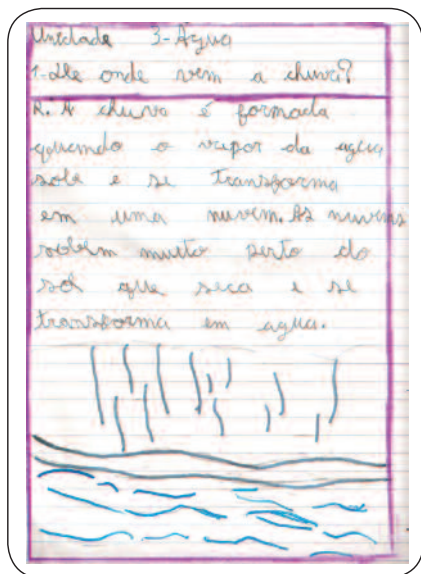 Unidade 3-Agua
1-De onde vem a chuva?
R. A chuva é formada
quando o vapor da agua
sobe e se transforma
em uma nuvem. As nuvens
sobem muito perto do
sol que seca e se
transforma em agua.